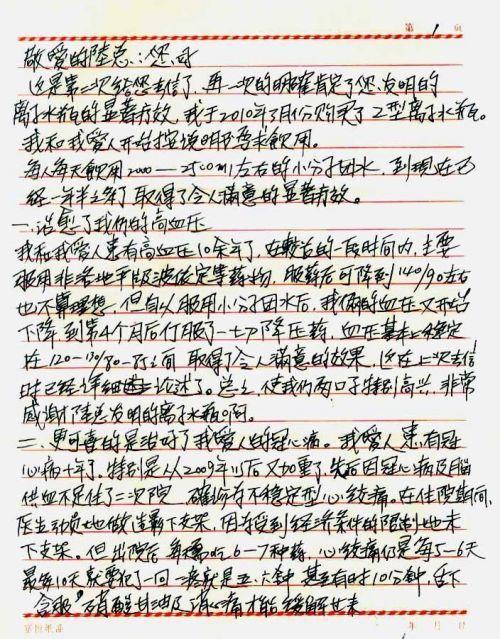 第 1 页
敬爱的陆总：您好
这是第二次给您去信了，再一次的明确肯定了您发明的
离子水瓶的显著疗效，我于2010年3月份购买了Z型离子水瓶。
我和我爱人开始按说明及要求飲用。
每人每天飲用2000—2500ml左右的小分子团水，到现在已
经一年半多了取得了令人滿意的显著疗效。
一.治愈了我俩的高血压
我和我爱人患有高血压10余年了，在較长的一段时间内，主要
服用非洛地平缓波依定等药物，服藥后可降到140/90左右
也不算理想，但自从服用小分子团水后，我俩的血压又开始
下降，到第4个月后停服了一切降压藥，血压基本上稳定
在120—130/80—85之间取得了令人滿意的效果，这在上次去信
时已经详细论述了。总之，使我们两口子特别高兴，非常
感谢陆总发明的离子水瓶啊。
二、更可喜的是治好了我爱人的冠心病。我爱人患有冠
心病十年了。特别是从2009年以后又加重了，先后因冠心病及脑
供血不足住了二次院，確诊为不稳定型心绞痛，在住院期间，
医生动员她做造影下支架，因为受到经济条件的限制她未
下支架。但出院后每天吃6—7种药，心绞痛仍是每5—6天
最多10天就要犯了一回一疼就是五、六分钟，甚至有时10分钟，舌下
含服硝酸甘油及消心痛才能缓解过来
富恒纸品
年 月 日